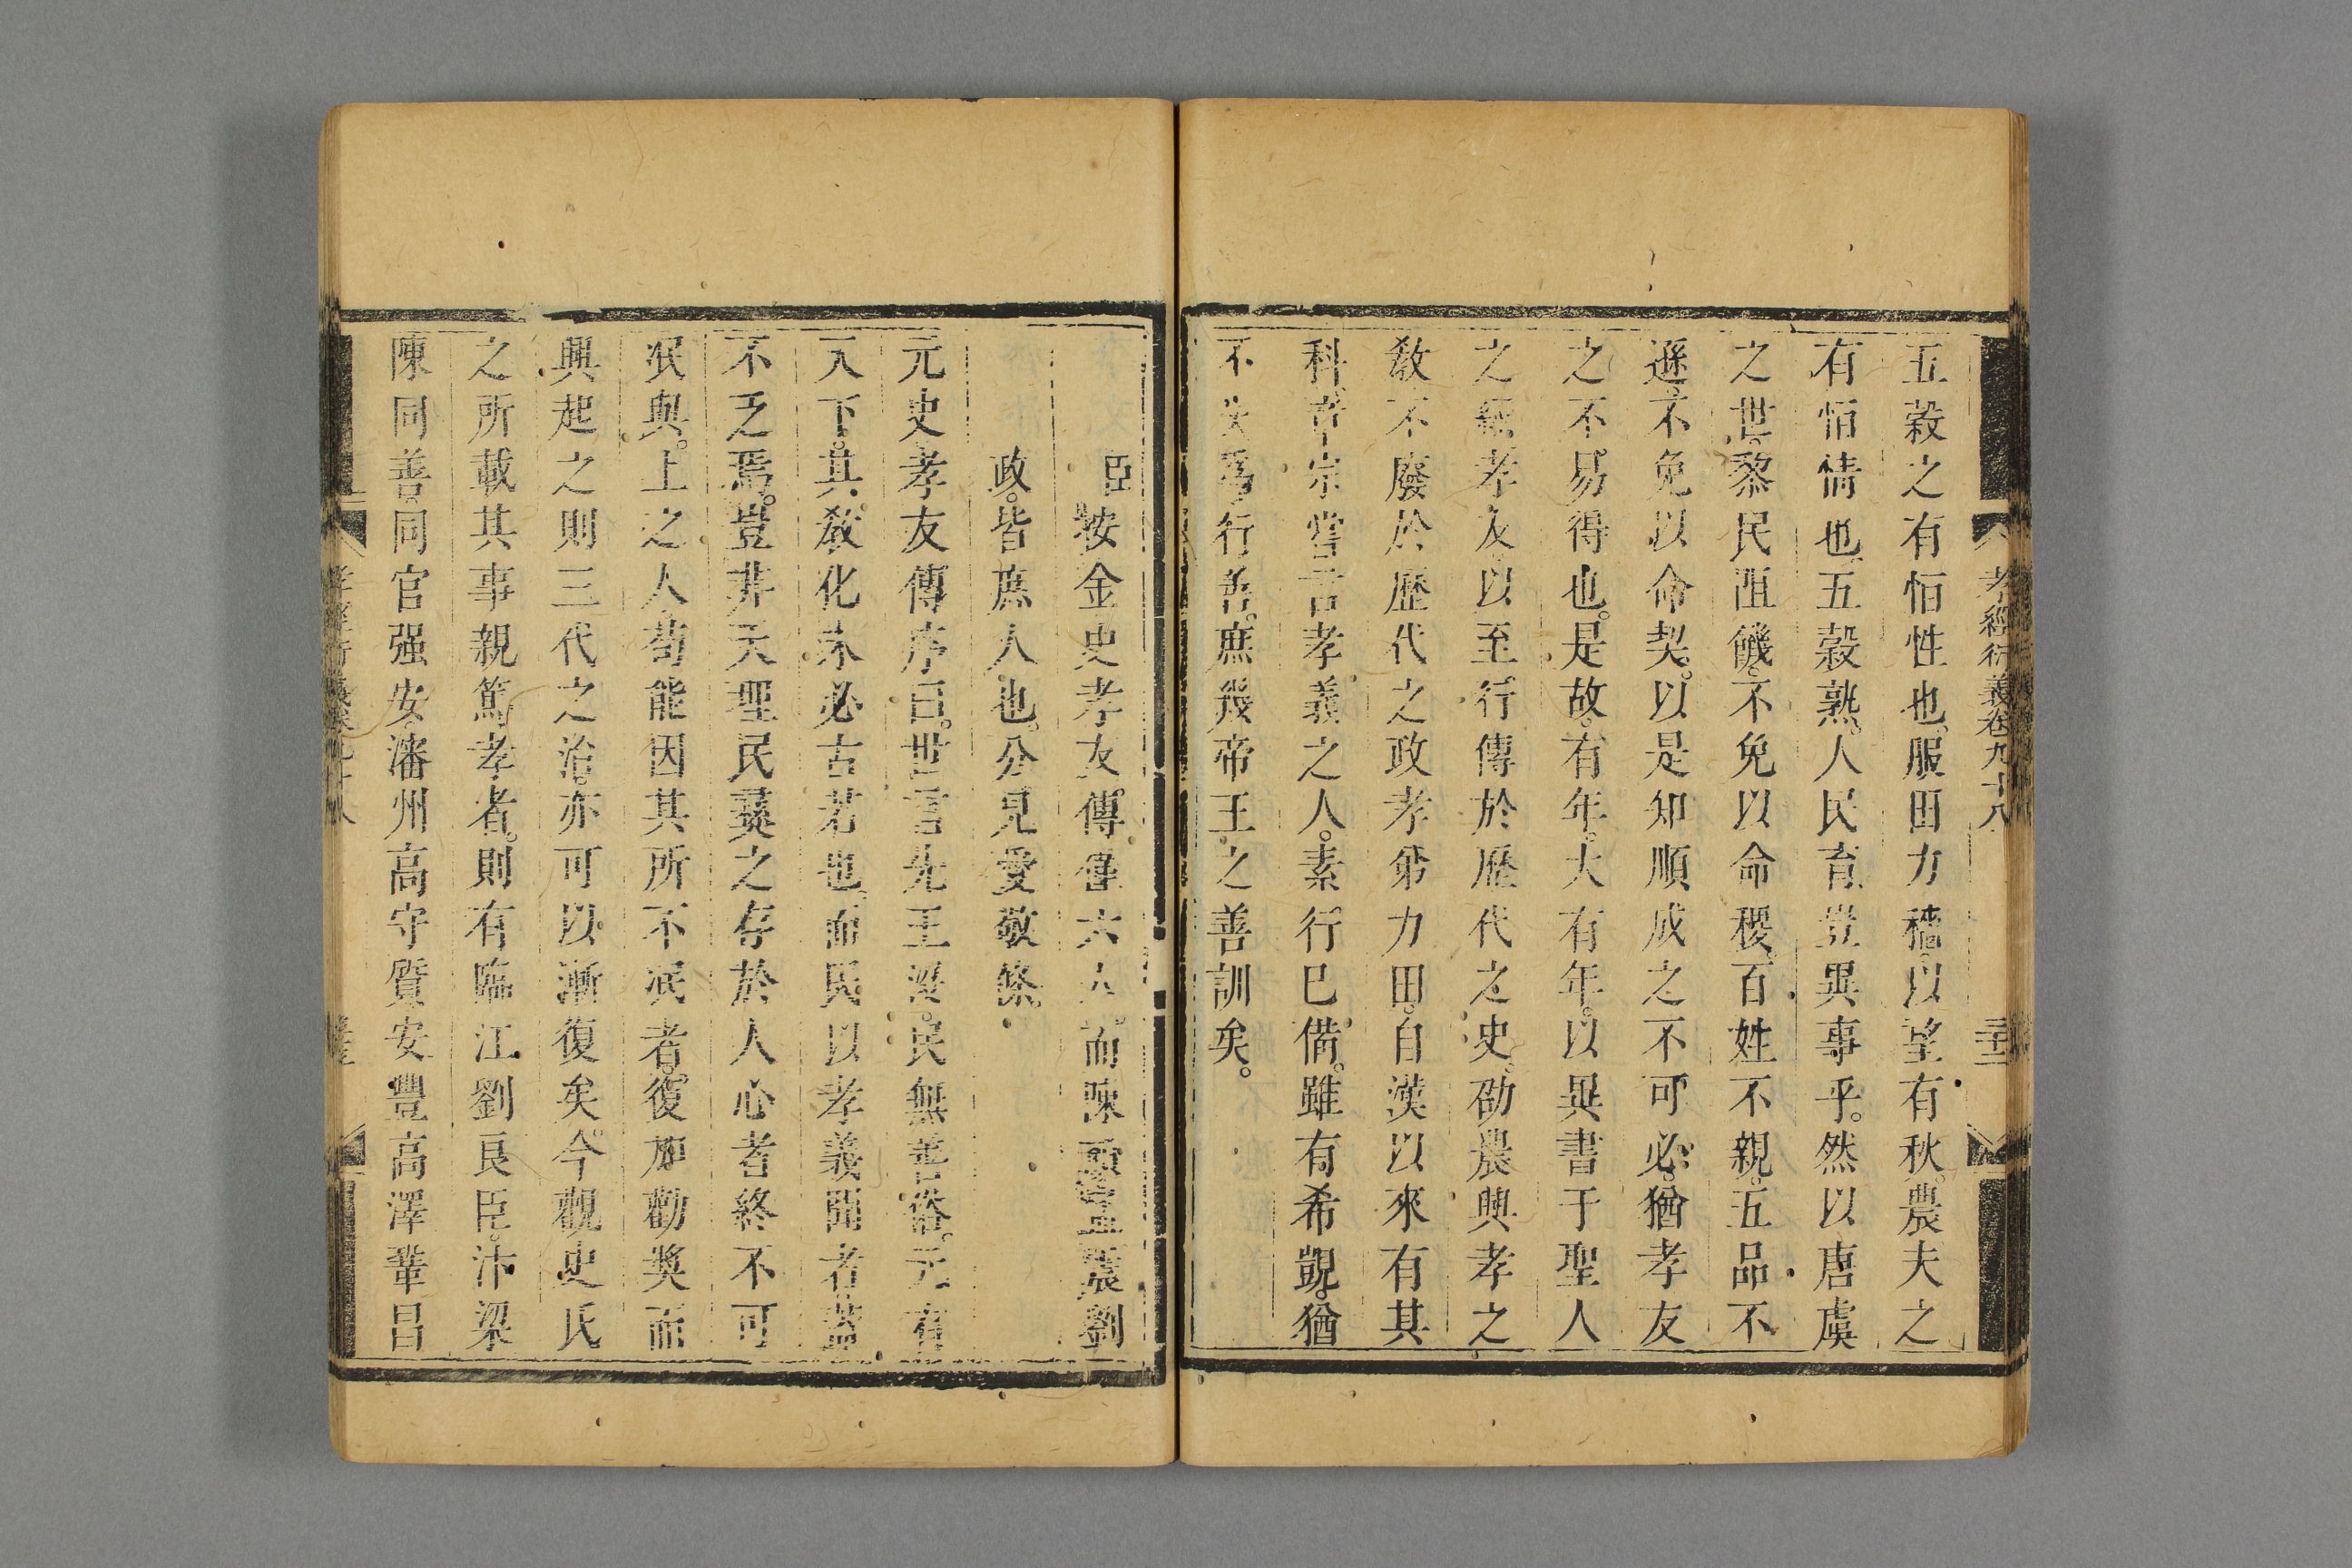 孝經衍義卷九十八
五穀之有恒性也服田力穡以望有秋農夫之
有恒情也五穀熟人民育豈異事乎然以唐虞
之世黎民阻饑不免以命稷百姓不親五品不
遜不免以命契以是知順成之不可必猶孝友
之不易得也是故有年大有年以異書于聖人
之經孝友以至行傳於歷代之史劭農興孝之
敎不廢於歷代之政孝弟力田自漢以來有其
科章宗嘗言孝義之人素行已備雖有希覬猶
不失爲行善庶幾帝王之善訓矣
臣按金史孝友傳僅六人而陳顏孟震劉
政皆庶人也公見愛敬條
元史孝友傳序曰世言先王沒民無善俗元有
天下其敎化未必古若也而民以孝義聞者葢
不乏焉豈非天理民彝之存於人心者終不可
泯與上之人苟能因其所不泯者復加勸奬而
興起之則三代之治亦可以漸復矣今觀史氏
之所載其事親篤孝者則有臨江劉良臣汴梁
陳同善同官强安瀋州高守質安豐高澤鞏昌